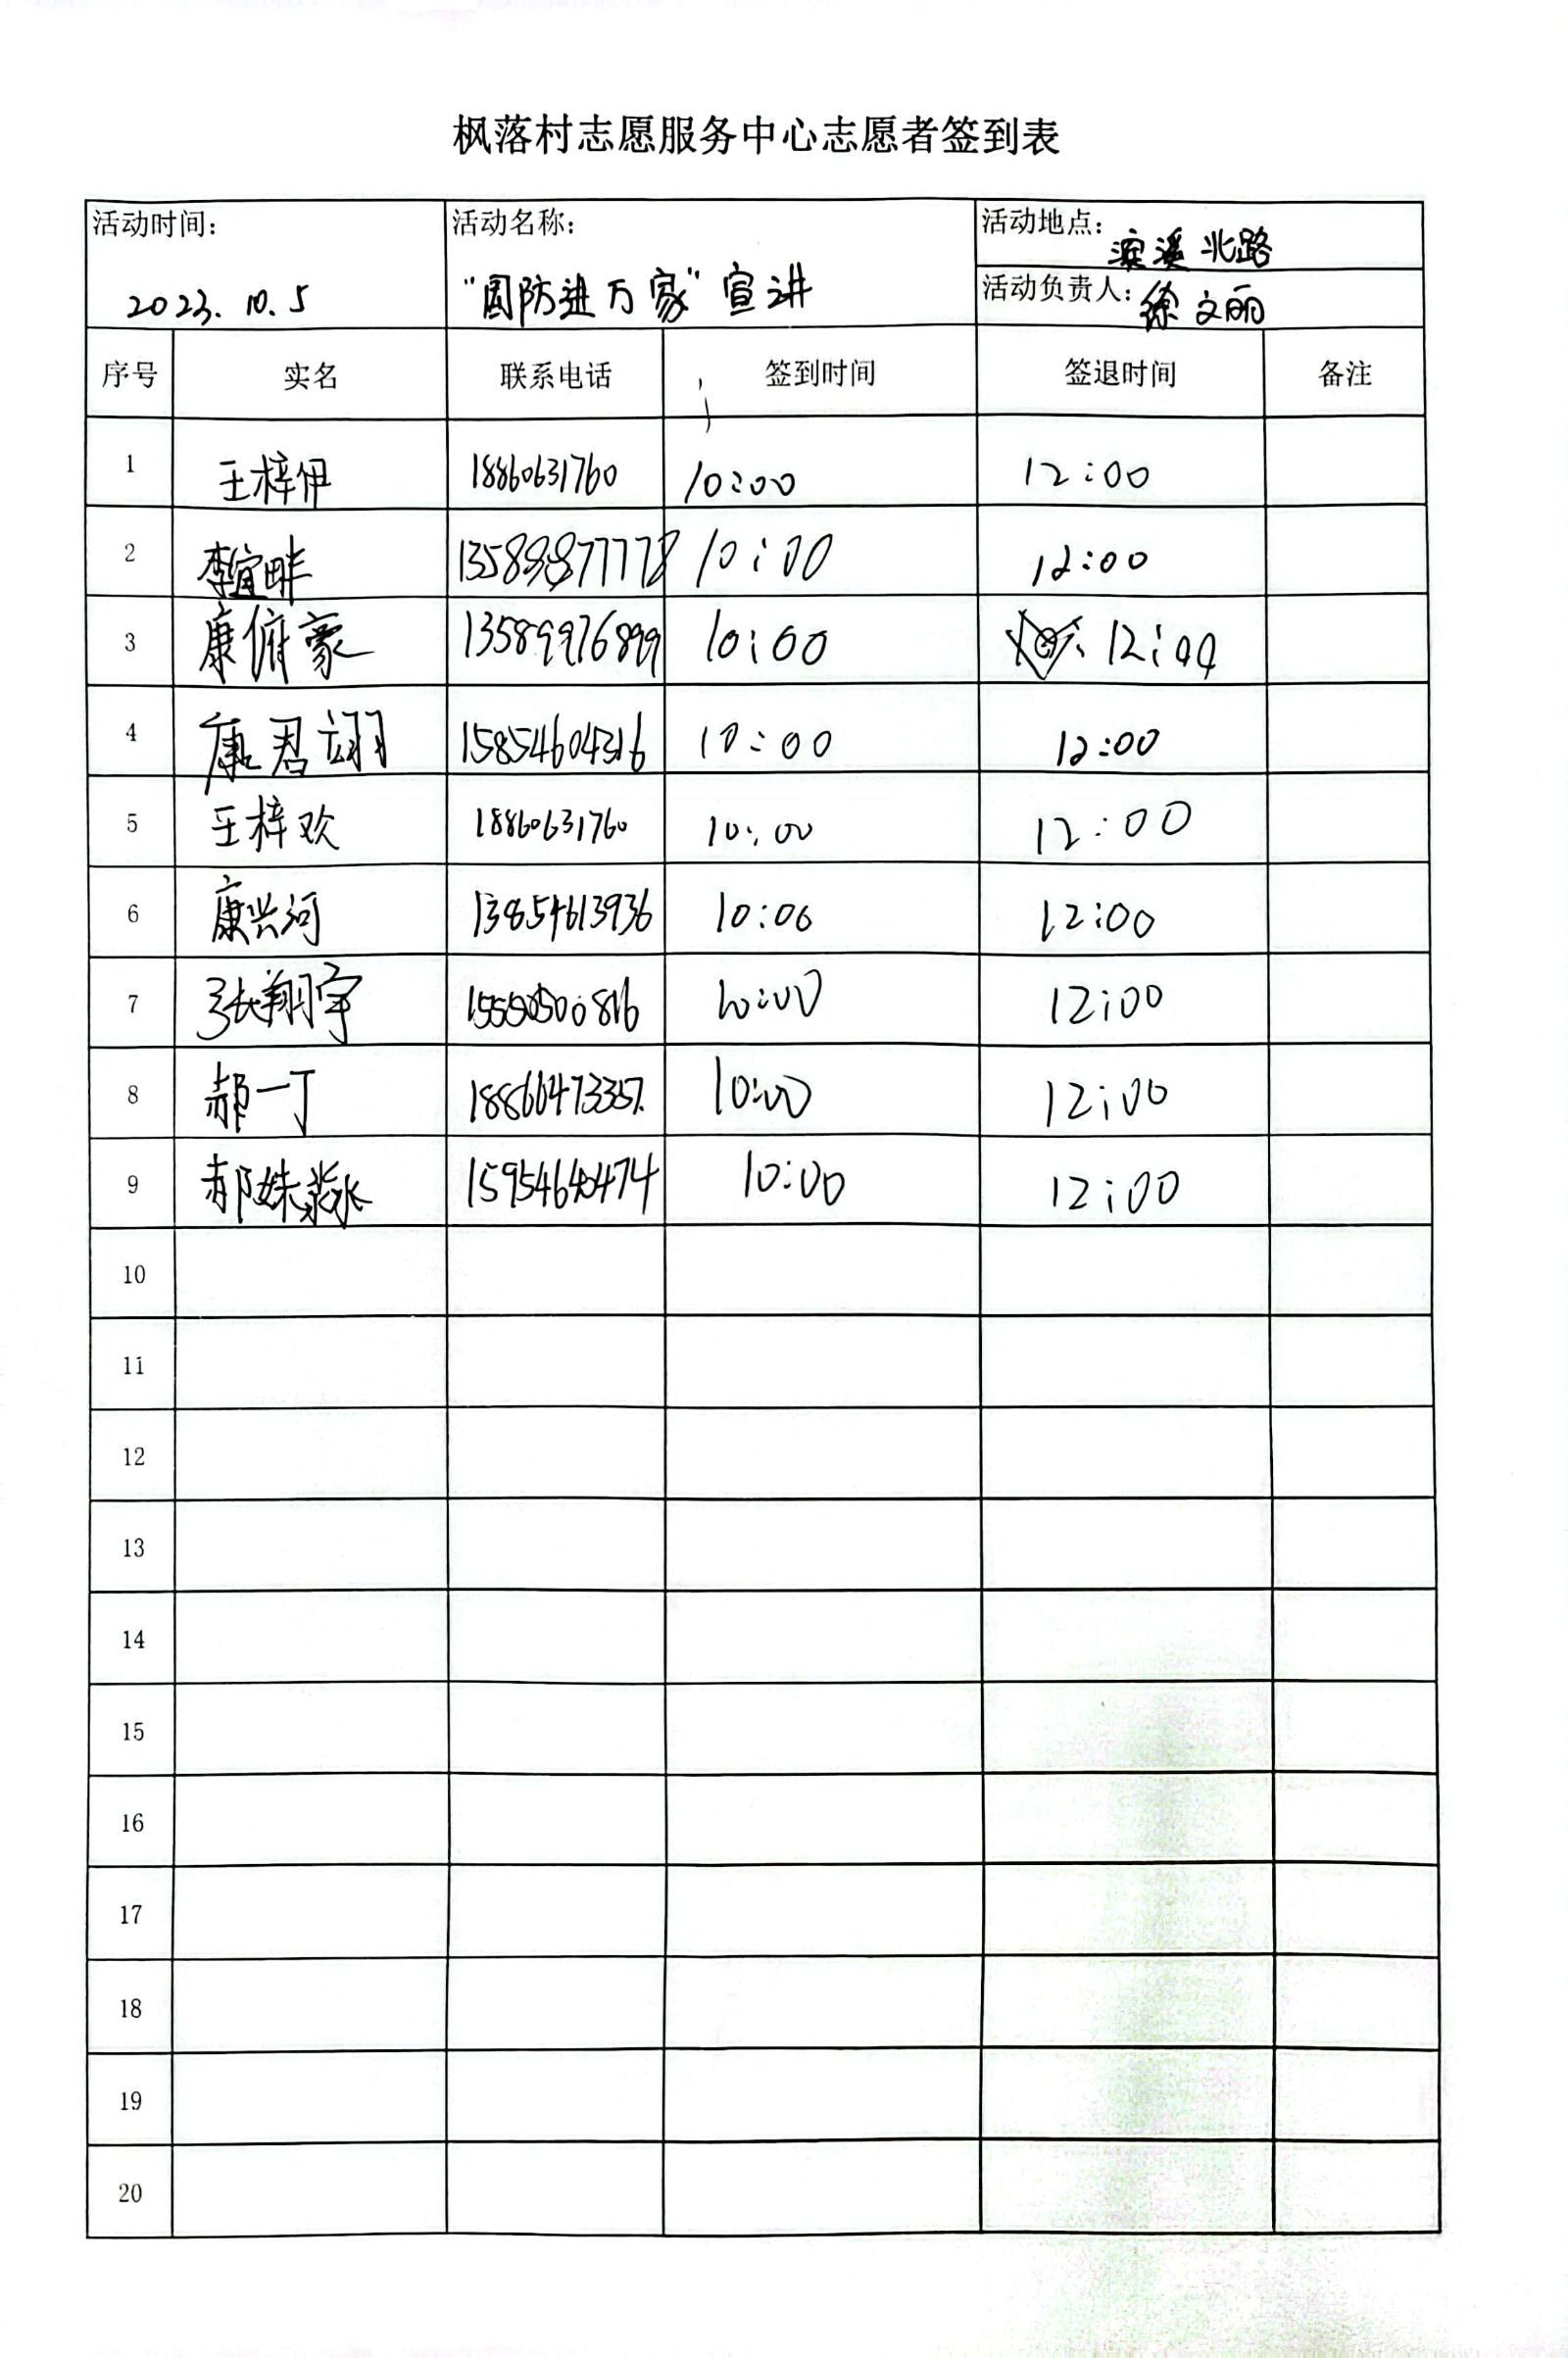 枫落村志愿服务中心志愿者签到表
活动时间： 活动名称： 活动地点： 滨溪北路
2023.10.5 "国防进万家"宣讲 活动负责人： 徐文丽
序号 实名 联系电话 签到时间 签退时间 备注
1 王梓伊 18860631760 10:00 12:00
2 李宜畔 10:00 12:00
3 康俯豪 13589976899 10:00 12:00
4 康君翊 15854604316 10:00 12:00
5 王梓欢 18860631760 10:00 12:00
6 康兴河 13854613936 10:00 12:00
7 张翔宇 10:00 12:00
8 郝一丁 10:00 12:00
9 郝姝淼 10:00 12:00
10
11
12
13
14
15
16
17
18
19
20